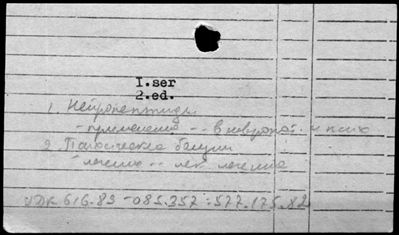 I.ser
2.ed.
1. Нейропептиды
- применение -- в невропат. и псих
2. Психические болезни
- лечение -- лек. лечение
УДК 616.89-085.357:577.175.82